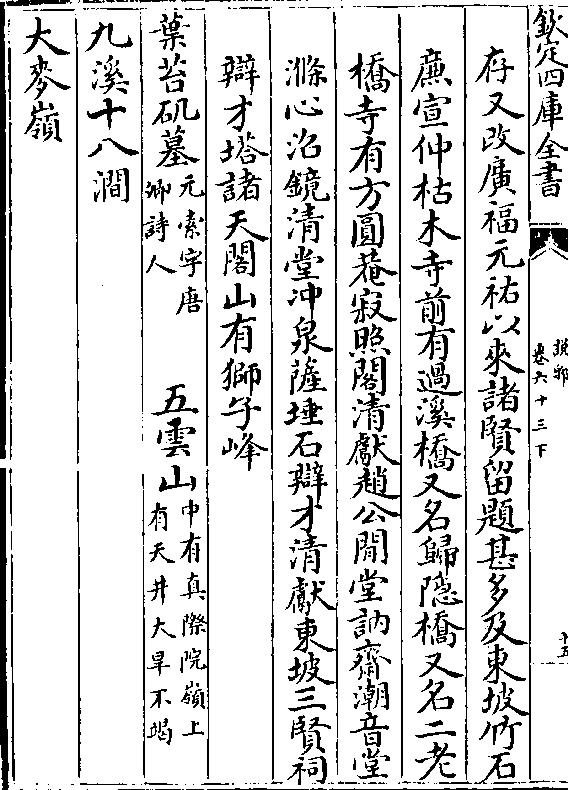 欽定四庫全書
說郛
卷六十三下
十五
存又改廣福元祐以來諸賢留題甚多及東坡竹石
㢘宣仲枯木寺前有過溪橋又名歸隱橋又名二老
橋寺有方圓菴寂照閣清獻趙公閒堂訥齋潮音堂
滌心沼鏡清堂冲泉薩埵石辯才清獻東坡三賢祠
辯才塔諸天閣山有獅子峰
葉苔矶墓元索字唐卿詩人 五雲山中有真際院嶺上有天井大旱不竭
九溪十八澗
大麥嶺